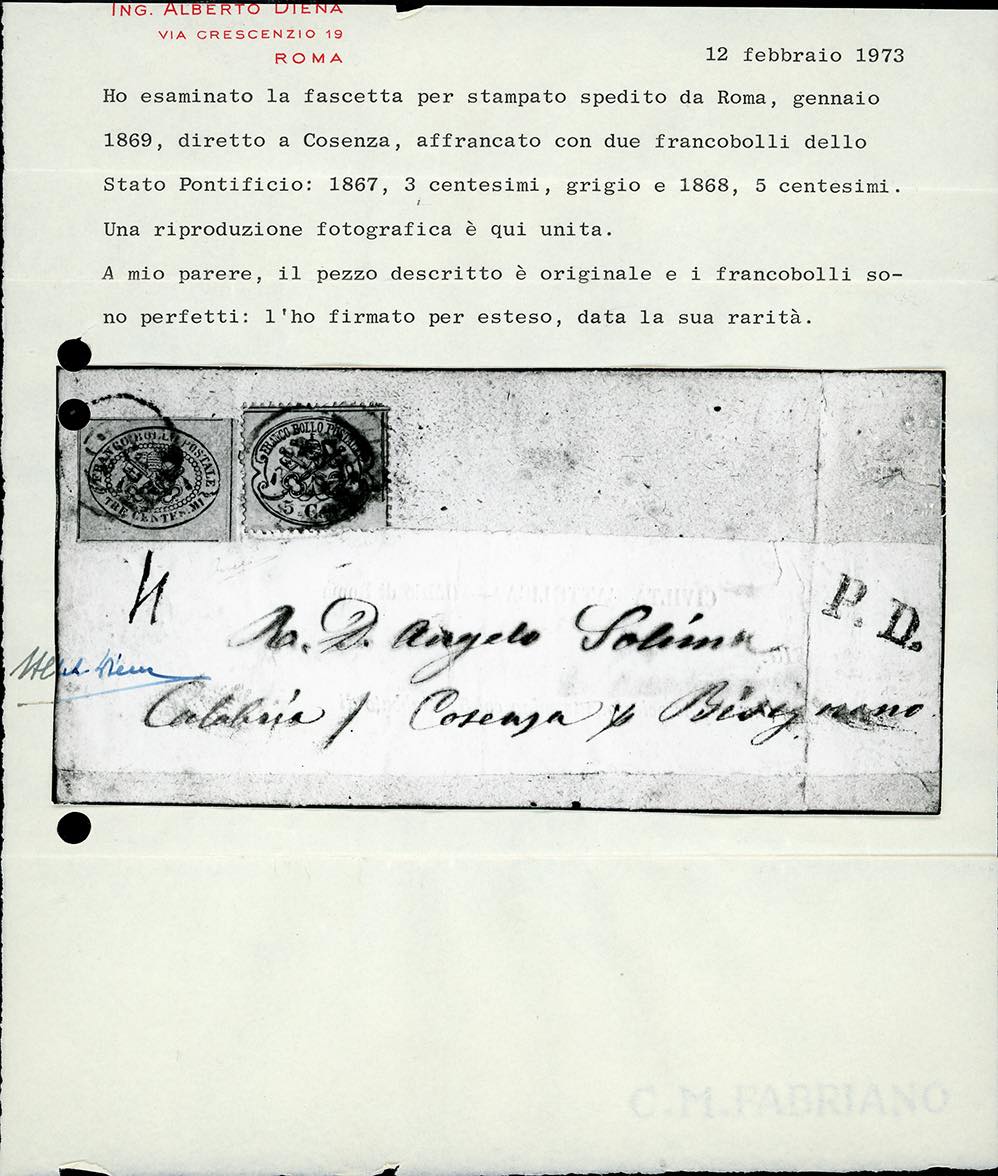 ING. ALBERTO DIENA
VIA CRESCENZIO 19
ROMA
12 febbraio 1973
Ho esaminato la fascetta per stampato spedito da Roma, gennaio
1869, diretto a Cosenza, affrancato con due francobolli dello
Stato Pontificio: 1867, 3 centesimi, grigio e 1868, 5 centesimi.
Una riproduzione fotografica è qui unita.
A mio parere, il pezzo descritto è originale e i francobolli so-
no perfetti: l'ho firmato per esteso, data la sua rarità.
FRANCO BOLLO POSTALE
TRE CENTESIMI
FRANCO BOLLO POSTALE
5 C
P. D.
R. D. Angelo Solima
Calabria / Cosenza x Bisignano
C.M.FABRIANO